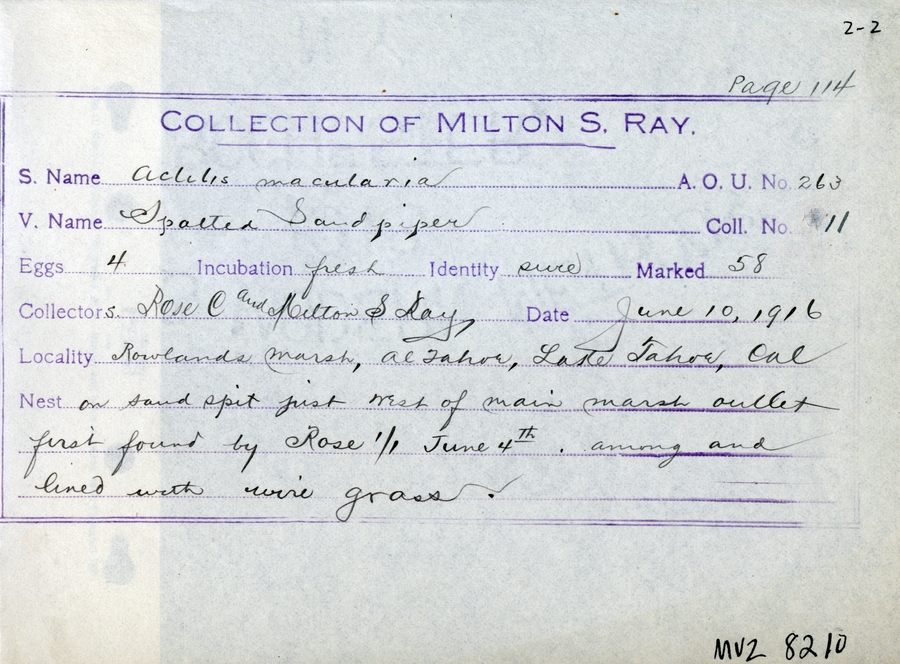 2-2
Page 114
COLLECTION OF MILTON S. RAY.
S. Name Actitis macularia A. O. U. No. 263
V. Name Spotted Sandpiper Coll. No. 11
Eggs 4 Incubation fresh Identity sure Marked 58
Collectors. Rose C and Milton S Ray, Date June 10, 1916
Locality Rowlands marsh, Al Tahoe, Lake Tahoe, Cal
Nest on sand spit just west of main marsh outlet
first found by Rose 1/1 June 4th. among and
lined with wire grass.
MVZ 8210